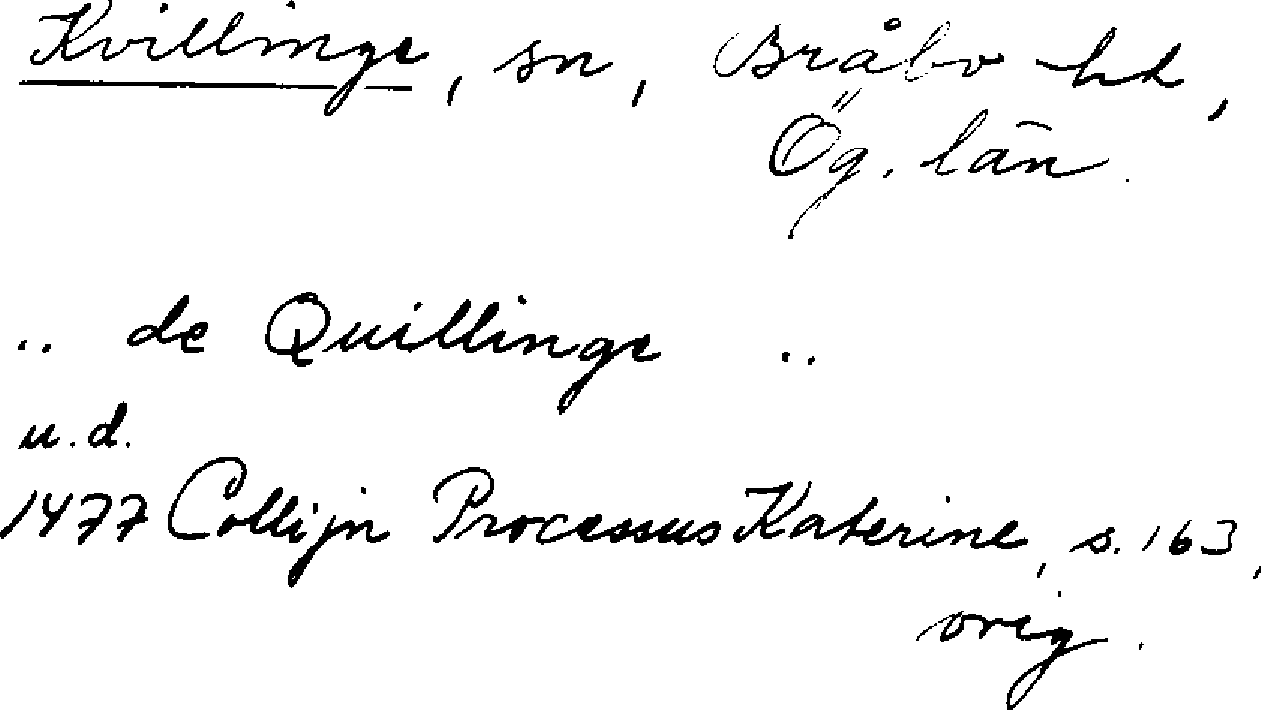 Kvillinge, sn, Bråbo hd,
Ög. län.
.. de Quillinge ..
u.d.
1477 Collijn Processus Katerine, s. 163,
orig.